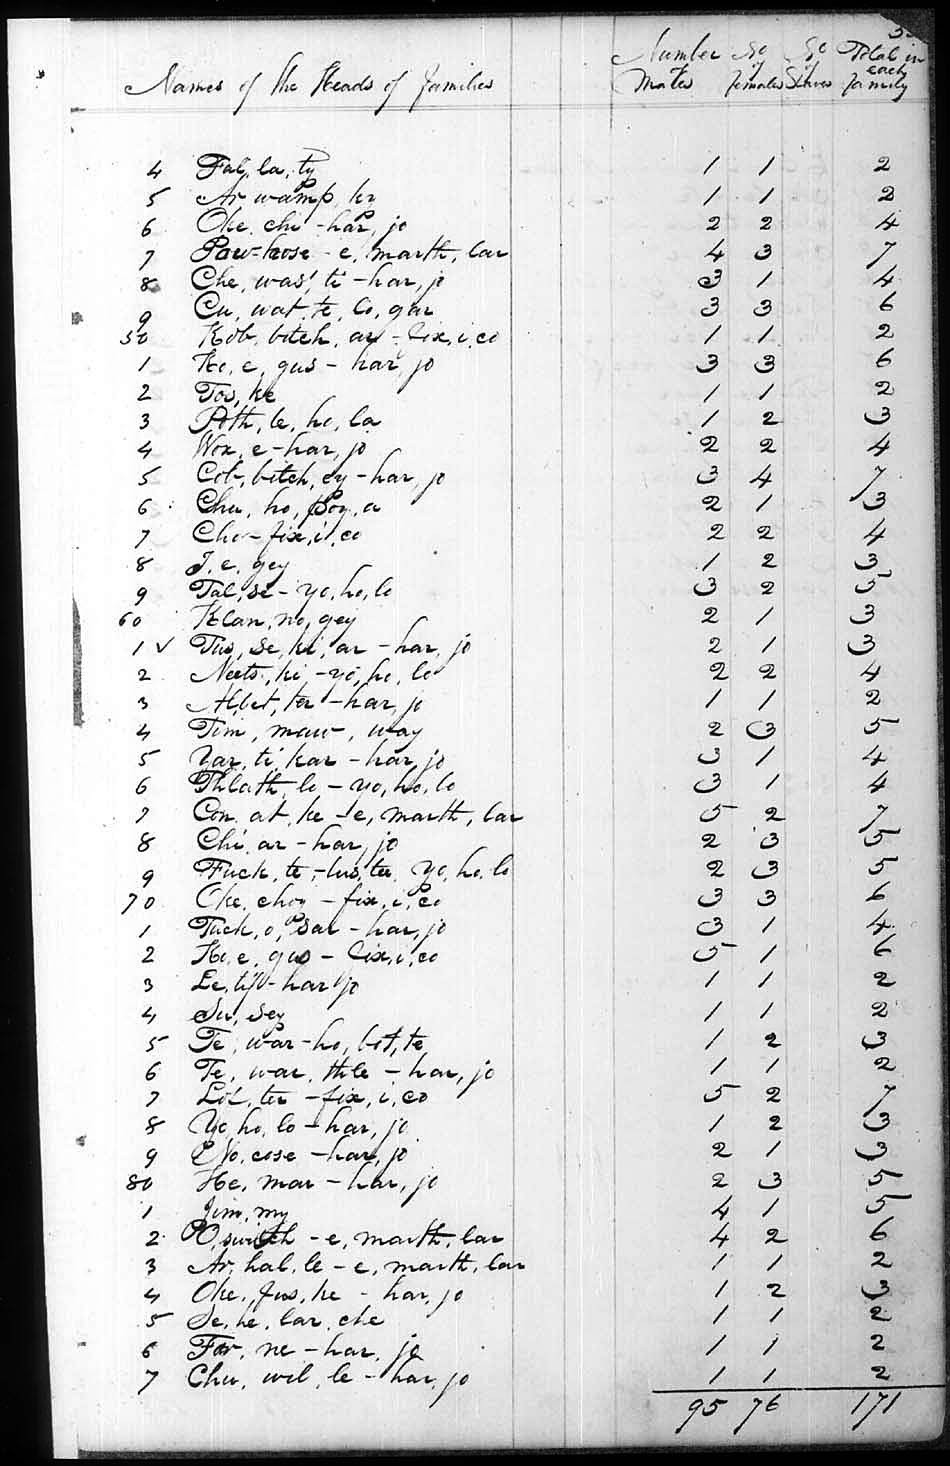 Names of the Heads of families Number of Males No of females No of Slaves Total in each family
4 Fal, la, ty 1 1 2
5 Ar, wamp, ky 1 1 2
6 Oke, chi - har, jo 2 2 4
7 Paw-hose - e, marth, lar 4 3 7
8 Che, was, ti - har, jo 3 1 4
9 Cu, wat, te, Co, gar 3 3 6
50 Kob, bitch, ar - fix, i, co 1 1 2
1 Ko, e, gus - har, jo 3 3 6
2 Tos, ke 1 1 2
3 Poth, le, ho, la 1 2 3
4 Nox, e - har, jo 2 2 4
5 Cob, bitch, ey - har, jo 3 4 7
6 Chu, ho, poy, a 2 1 3
7 Cho - fix, i, co 2 2 4
8 I, e, gey 1 2 3
9 Tal, se - yo, ho, lo 3 2 5
60 Klan, no, gey 2 1 3
1 ✓ Tus, se, ki, ar - har, jo 2 1 3
2 Neets, ki, - yo, ho, lo 2 2 4
3 Al, bet, ter - har, jo 1 1 2
4 Tim, maw, way 2 3 5
5 Yar, ti, kar - har, jo 3 1 4
6 Thlath, lo - yo, ho, lo 3 1 4
7 Con, at, ke - e, marth, lar 5 2 7
8 Chi, ar - har, jo 2 3 5
9 Fuck, te - lus, ter, yo, ho, lo 2 3 5
70 Oke, choy - fix, i, co 3 3 6
1 Tuck, o, sar - har, jo 3 1 4
2 Ko, e, gus - fix, i, co 5 1 6
3 Le, tif - har jo 1 1 2
4 Su, sey 1 1 2
5 Te, war - ho, bot, te 1 2 3
6 Te, war, thle - har, jo 1 1 2
7 Lot, ter - fix, i, co 5 2 7
8 Yo, ho, lo - har, jo 1 2 3
9 No, cose - har, jo 2 1 3
80 He, mar - har, jo 2 3 5
1 Jim, my 4 1 5
2 O, switch - e, marth, lar 4 2 6
3 Ar, hal, le - e, marth, lar 1 1 2
4 Oke, fus, ke - har, jo 1 2 3
5 Se, he, lar, che 1 1 2
6 For, ne - har, jo 1 1 2
7 Chu, wil, le - har, jo 1 1 2
95 76 171